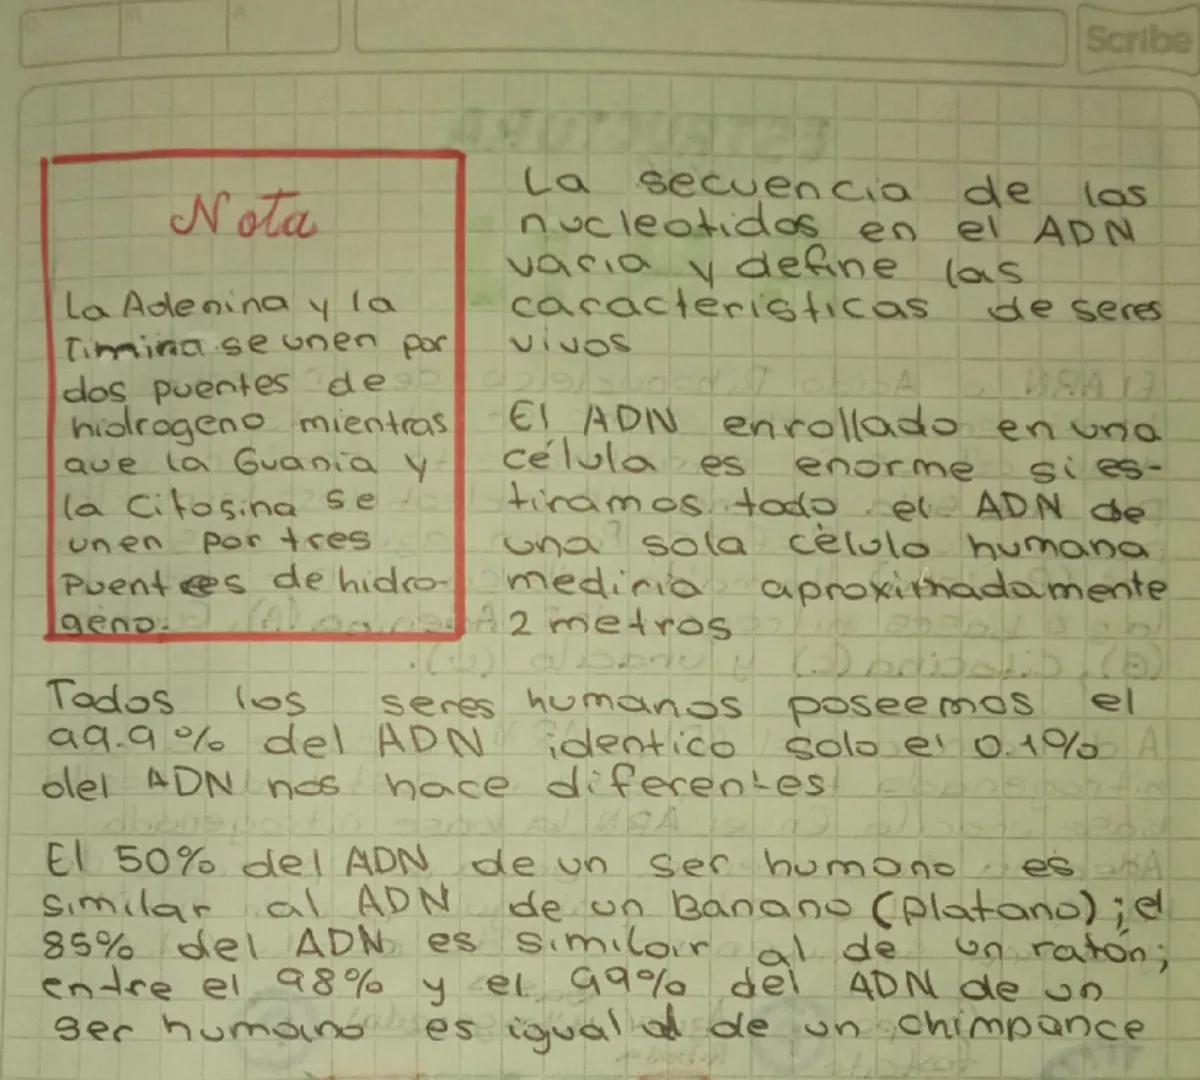 Scribe
Nota
La Adenina y la
Timina se unen por
dos puentes de
hidrogeno mientras
que la Guania y
la Citosina se
unen por tres
Puentes de hidro-
geno.
La secuencia de las
nucleotidos en el ADN
varia y define las
caracteristicas de seres
vivos
El ADN enrollado en una
célula es enorme si es-
tiramos todo el ADN de
una sola célula humana
mediria aproximadamente
2 metros
Todos los seres humanos poseemos el
99.9% del ADN identico solo el 0.1%
del ADN nos hace diferentes
El 50% del ADN de un ser humano es
similar al ADN de un Banano (platano); el
85% del ADN es similar al de un ratón;
entre el 98% y el 99% del ADN de un
ser humano es igual al de un chimpance